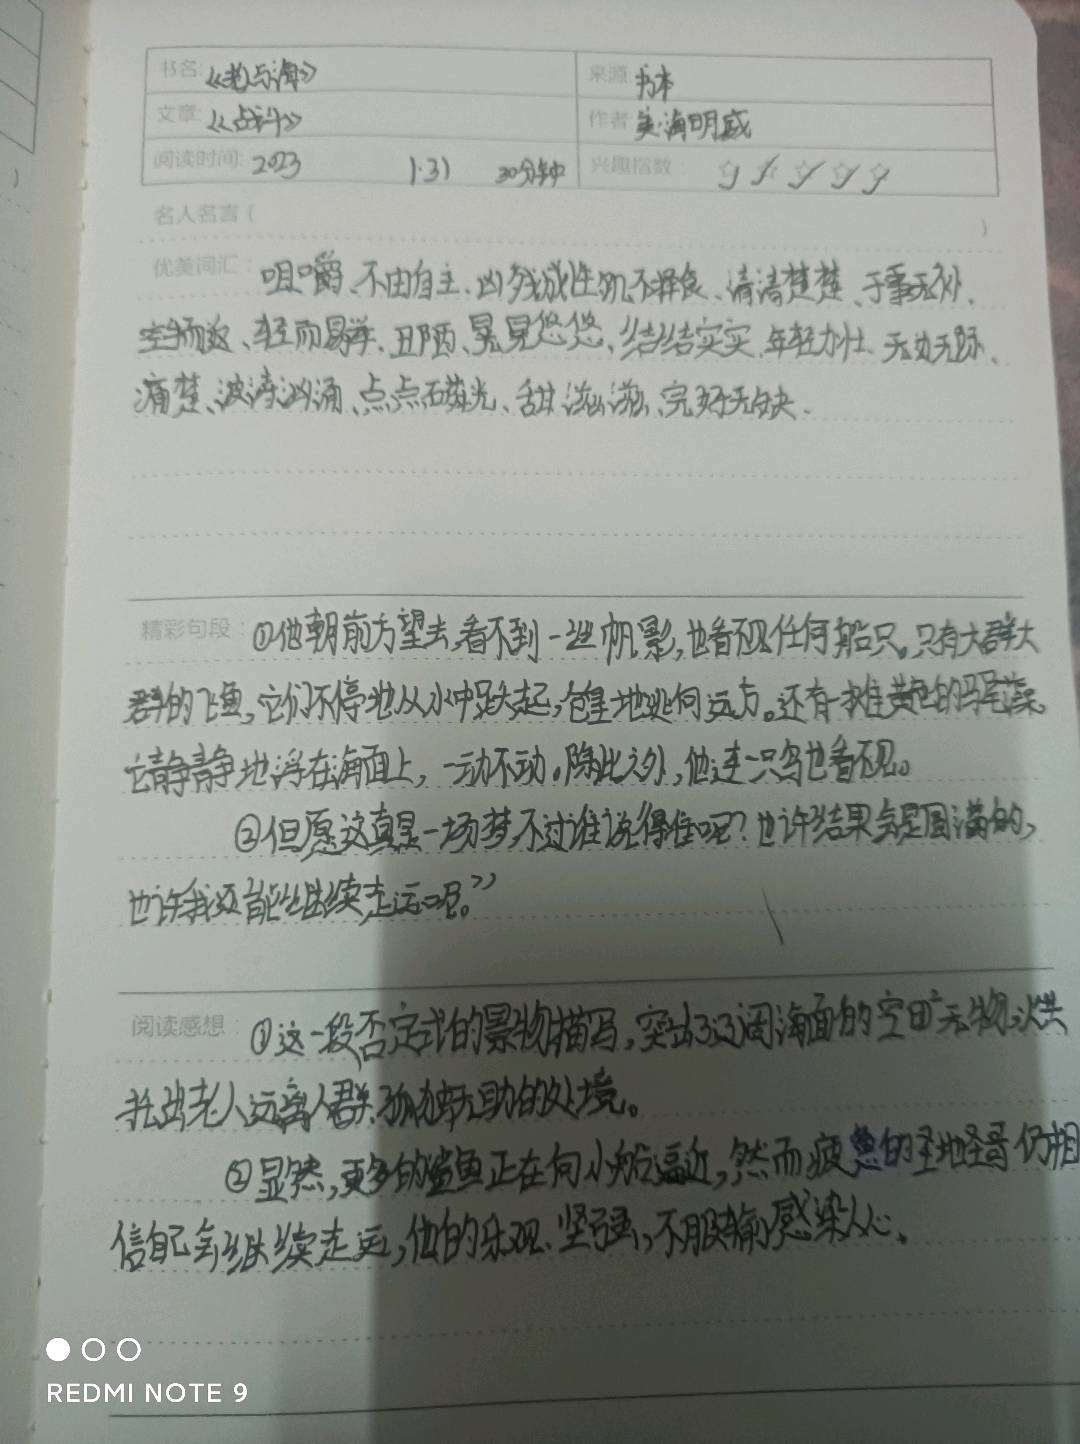 书名:《老与海》 来源 书本
文章:《战斗》 作者 美·海明威
阅读时间: 2023 1·31 30分钟 兴趣指数: ☆☆☆☆☆
名人名言( )
优美词汇: 咀嚼、不由自主、凶残成性、饥不择食、清清楚楚、于事无补、
轻而易举、丑陋、晃晃悠悠、结结实实、年轻力壮、无边无际、
痛楚、波涛汹涌、点点磷光、甜滋滋、完好无缺、
精彩句段: ①他朝前方望去,看不到一丝帆影,也看不见任何船只。只有大群大
群的飞鱼,它们不停地从水中跃起,仓皇地逃向远方。还有一堆黄色的马尾藻。
它静静地浮在海面上,一动不动。除此之外,他连一只鸟也看不见。
②但愿这真是一场梦,不过谁说得准呢?也许结果会是圆满的,
也许我还能继续走运呢。”
阅读感想: ①这一段否定式的景物描写,突出了周海面的空旷无物,烘
托出老人远离人群、孤独无助的处境。
②显然,更多的鲨鱼正在向小船逼近,然而疲惫的圣地亚哥仍相
信自己会继续走运,他的乐观、坚强,不服输感染人心。
REDMI NOTE 9